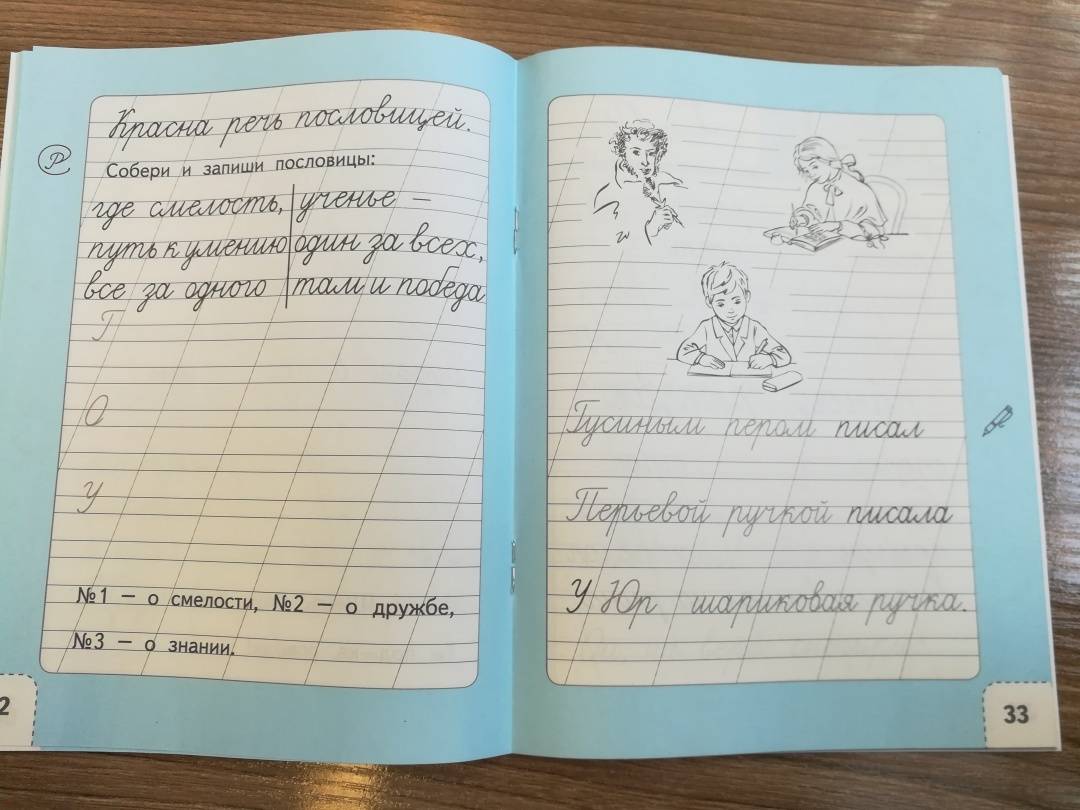 Красна речь пословицей.
Р
Собери и запиши пословицы:
где смелость, ученье –
путь к умению один за всех,
все за одного там и победа
Г
О
У
№1 – о смелости, №2 – о дружбе,
№3 – о знании.
2
Гусиным пером писал
Перьевой ручкой писала
У Юр шариковая ручка.
33